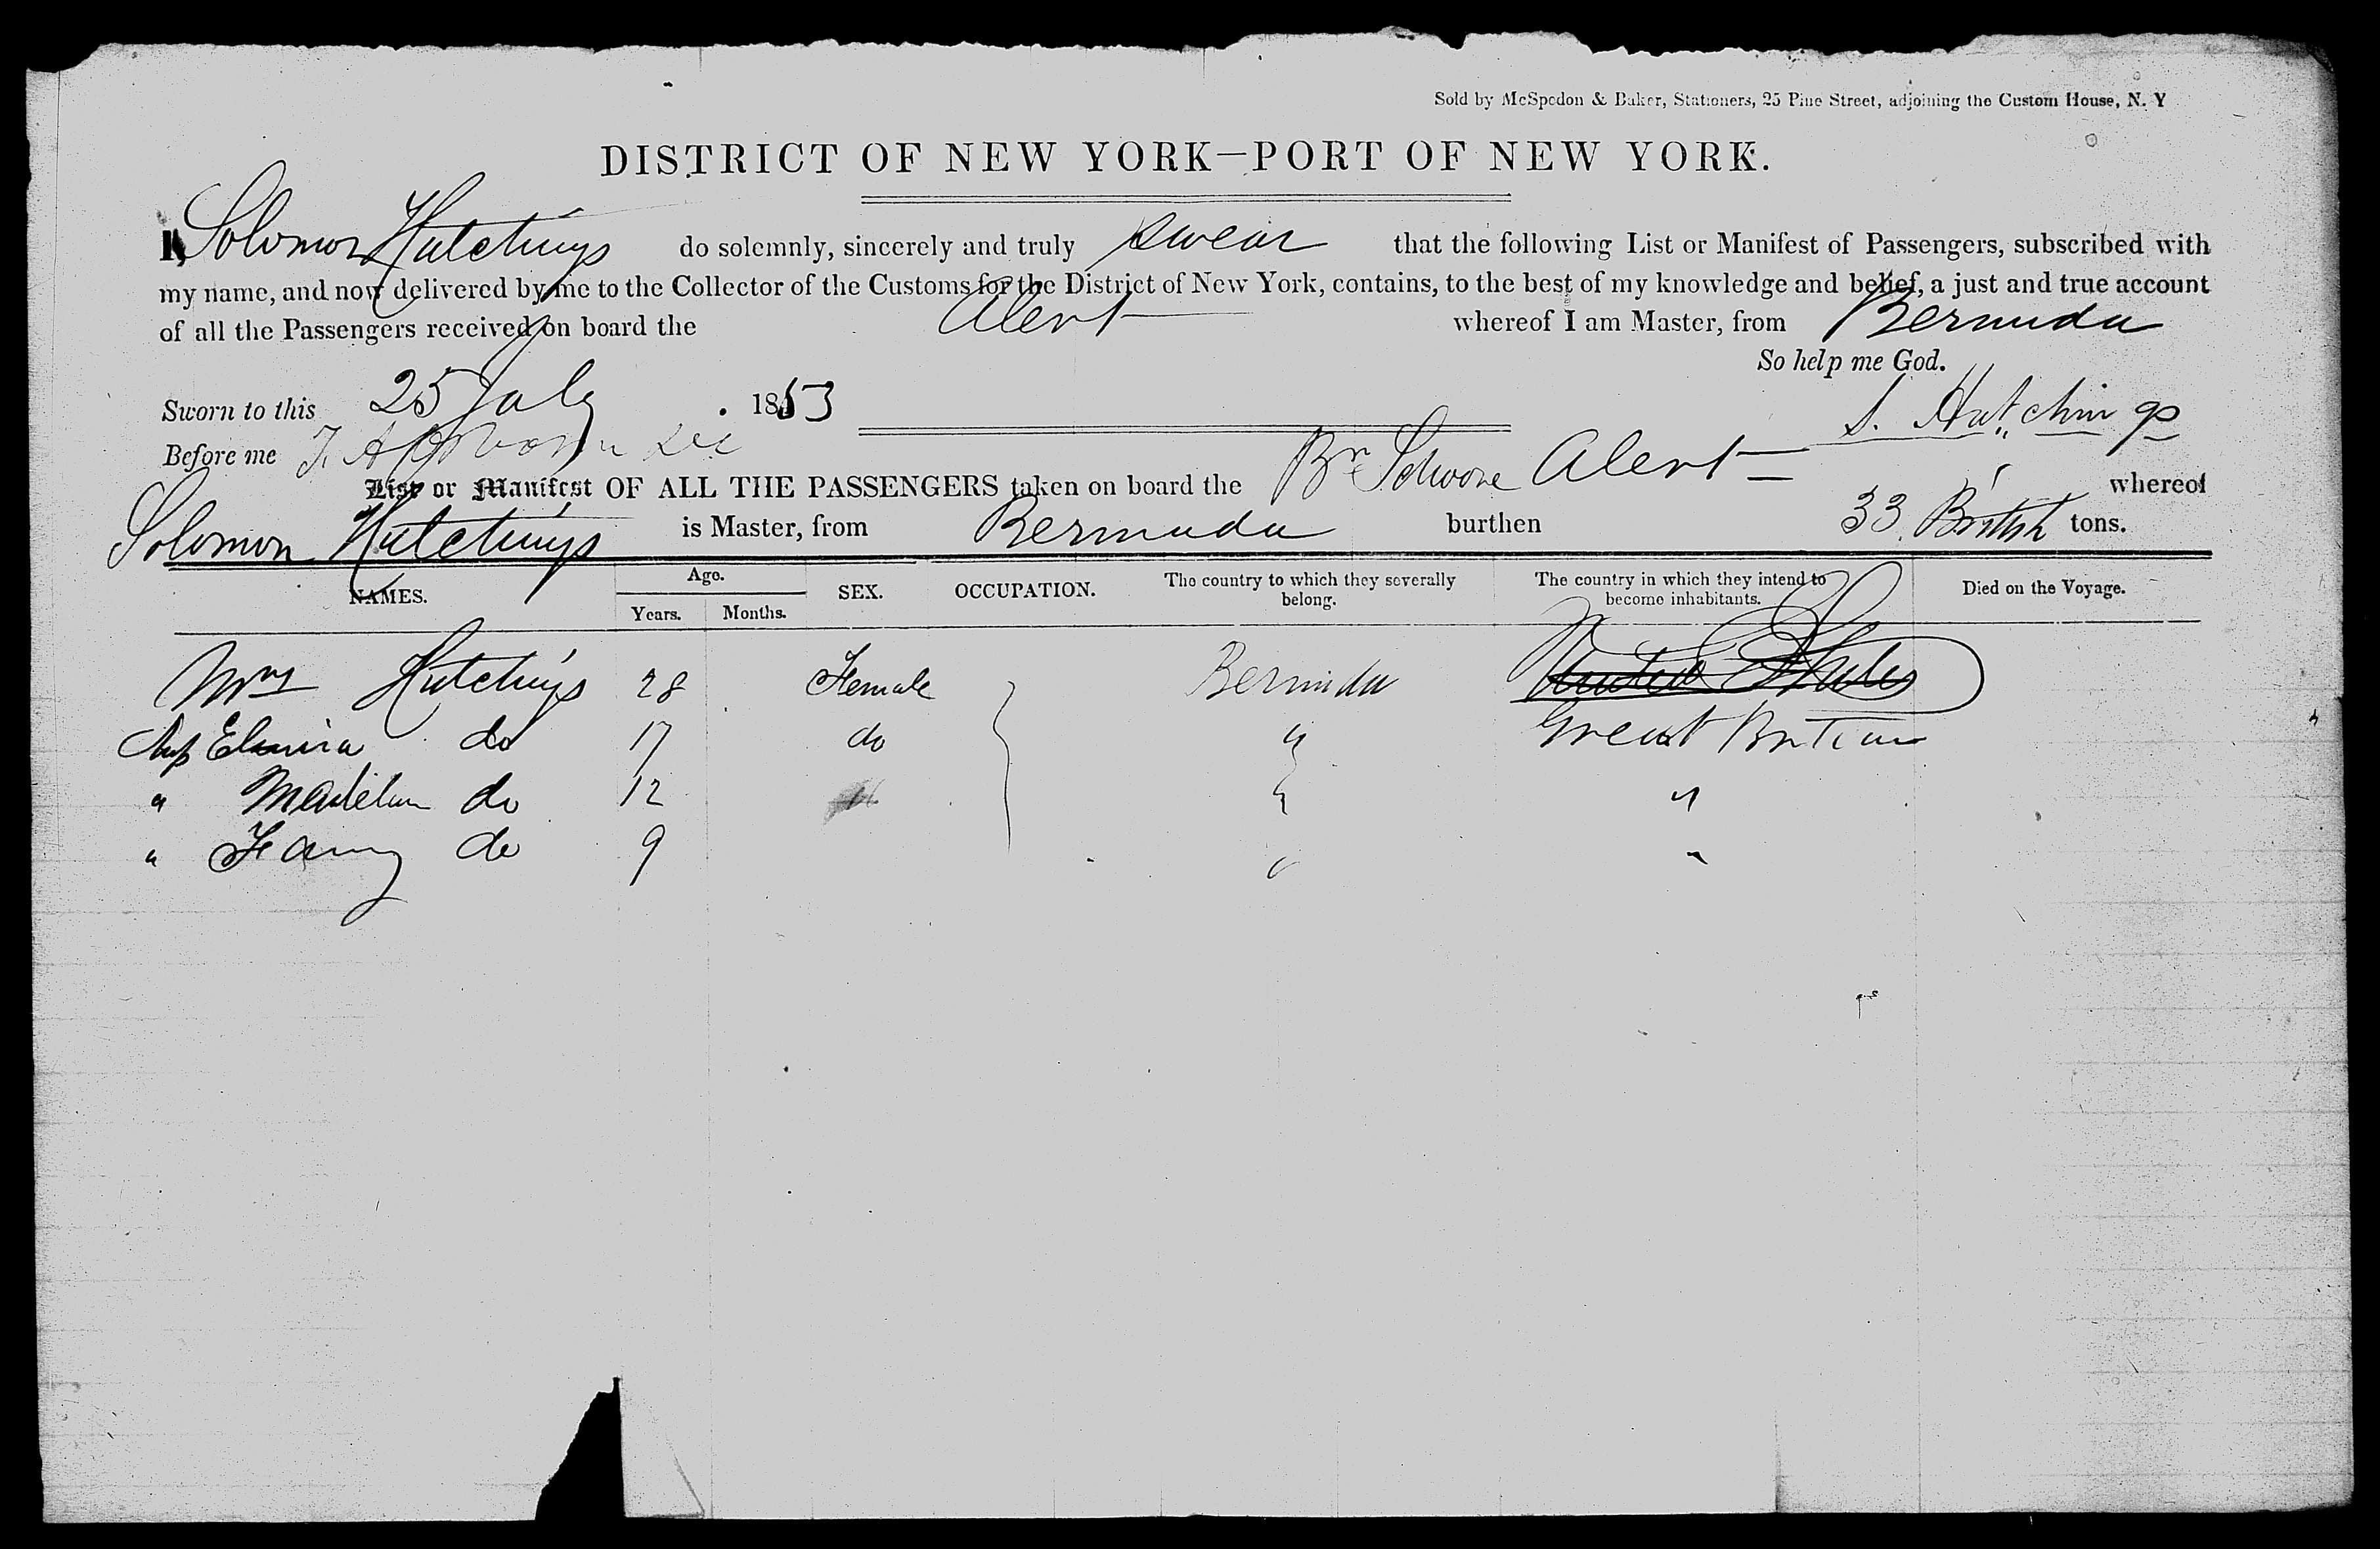 Sold by McSpedon & Baker, Stationers, 25 Pine Street, adjoining the Custom House, N. Y
DISTRICT OF NEW YORK—PORT OF NEW YORK.
I, Solomon Hutchings do solemnly, sincerely and truly swear that the following List or Manifest of Passengers, subscribed with
my name, and now delivered by me to the Collector of the Customs for the District of New York, contains, to the best of my knowledge and belief, a just and true account
of all the Passengers received on board the Alert whereof I am Master, from Bermuda
So help me God.
Sworn to this 25 July 1853 S. Hutchings
Before me
List or Manifest OF ALL THE PASSENGERS taken on board the Br Schoone Alert whereof
Solomon Hutchings is Master, from Bermuda burthen 33 British tons.
NAMES. Age. Years. Months. SEX. OCCUPATION. The country to which they severally belong. The country in which they intend to become inhabitants. Died on the Voyage.
Mrs Hutchings 28 Female Bermuda United States
Elmira do 17 do " Great Britian
" do 12 " " "
" Fanny do 9 " "